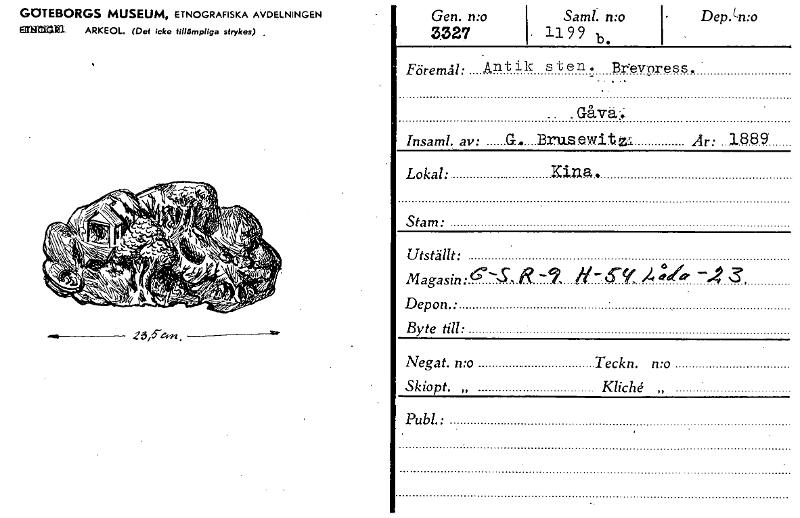 GÖTEBORGS MUSEUM, ETNOGRAFISKA AVDELNINGEN
ARKEOL. (Det icke tillämpliga strykes)
23,5 cm.
Gen. n:o Saml. n:o Dep. n:o
3327 1199 b.
Föremål: Antik sten. Brevpress.
Gåva.
Insaml. av: G. Brusewitz År: 1889
Lokal: Kina.
Stam:
Utställt:
Magasin: C-S. R-9 H-54 Låda-23.
Depon.:
Byte till:
Negat. n:o Teckn. n:o
Skiopt. „ Kliché „
Publ.: